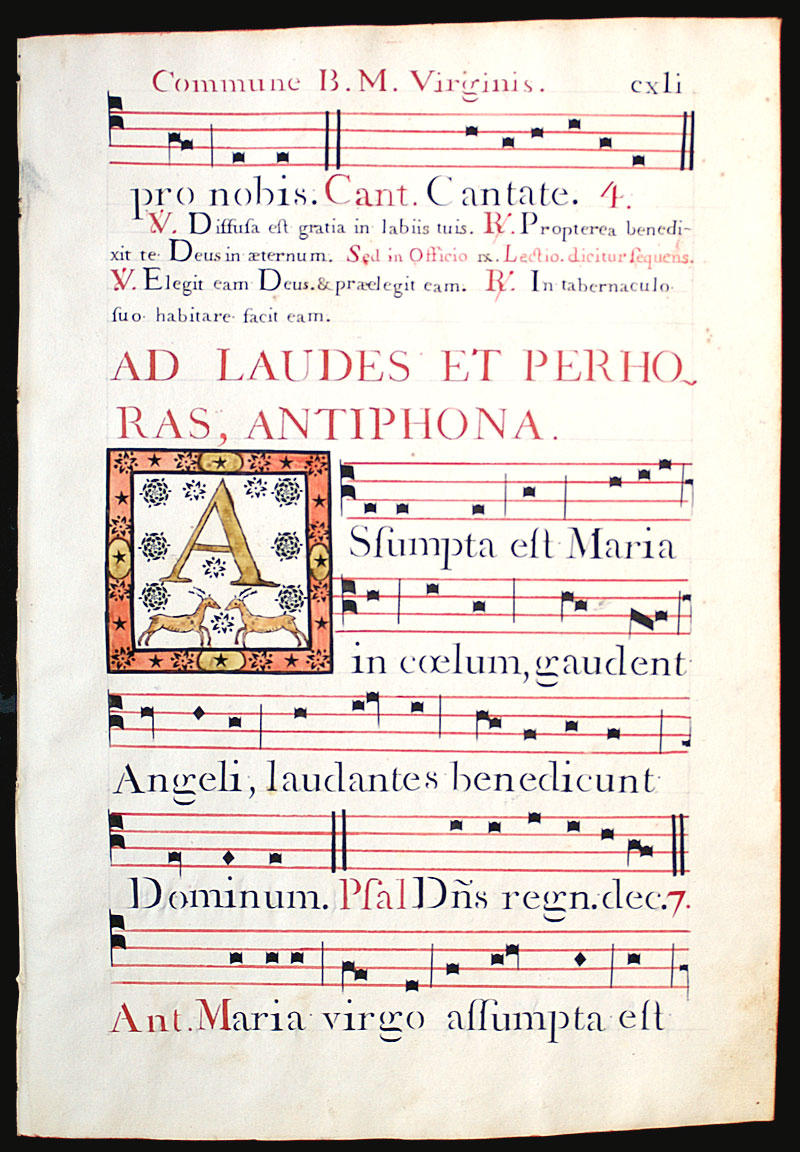 Commune B. M. Virginis. cxli
pro nobis. Cant. Cantate. 4.
℣. Diffuſa eſt gratia in labiis tuis. ℟. Propterea benedi-
xit te Deus in æternum. Sed in Officio ix. Lectio. dicitur ſequens.
℣. Elegit eam Deus. & præelegit eam. ℟. In tabernaculo
ſuo habitare facit eam.
AD LAUDES ET PER HO-
RAS, ANTIPHONA.
ASſumpta eſt Maria
in cœlum, gaudent
Angeli, laudantes benedicunt
Dominum. Pſal Dñs regn. dec. 7.
Ant. Maria virgo aſſumpta eſt